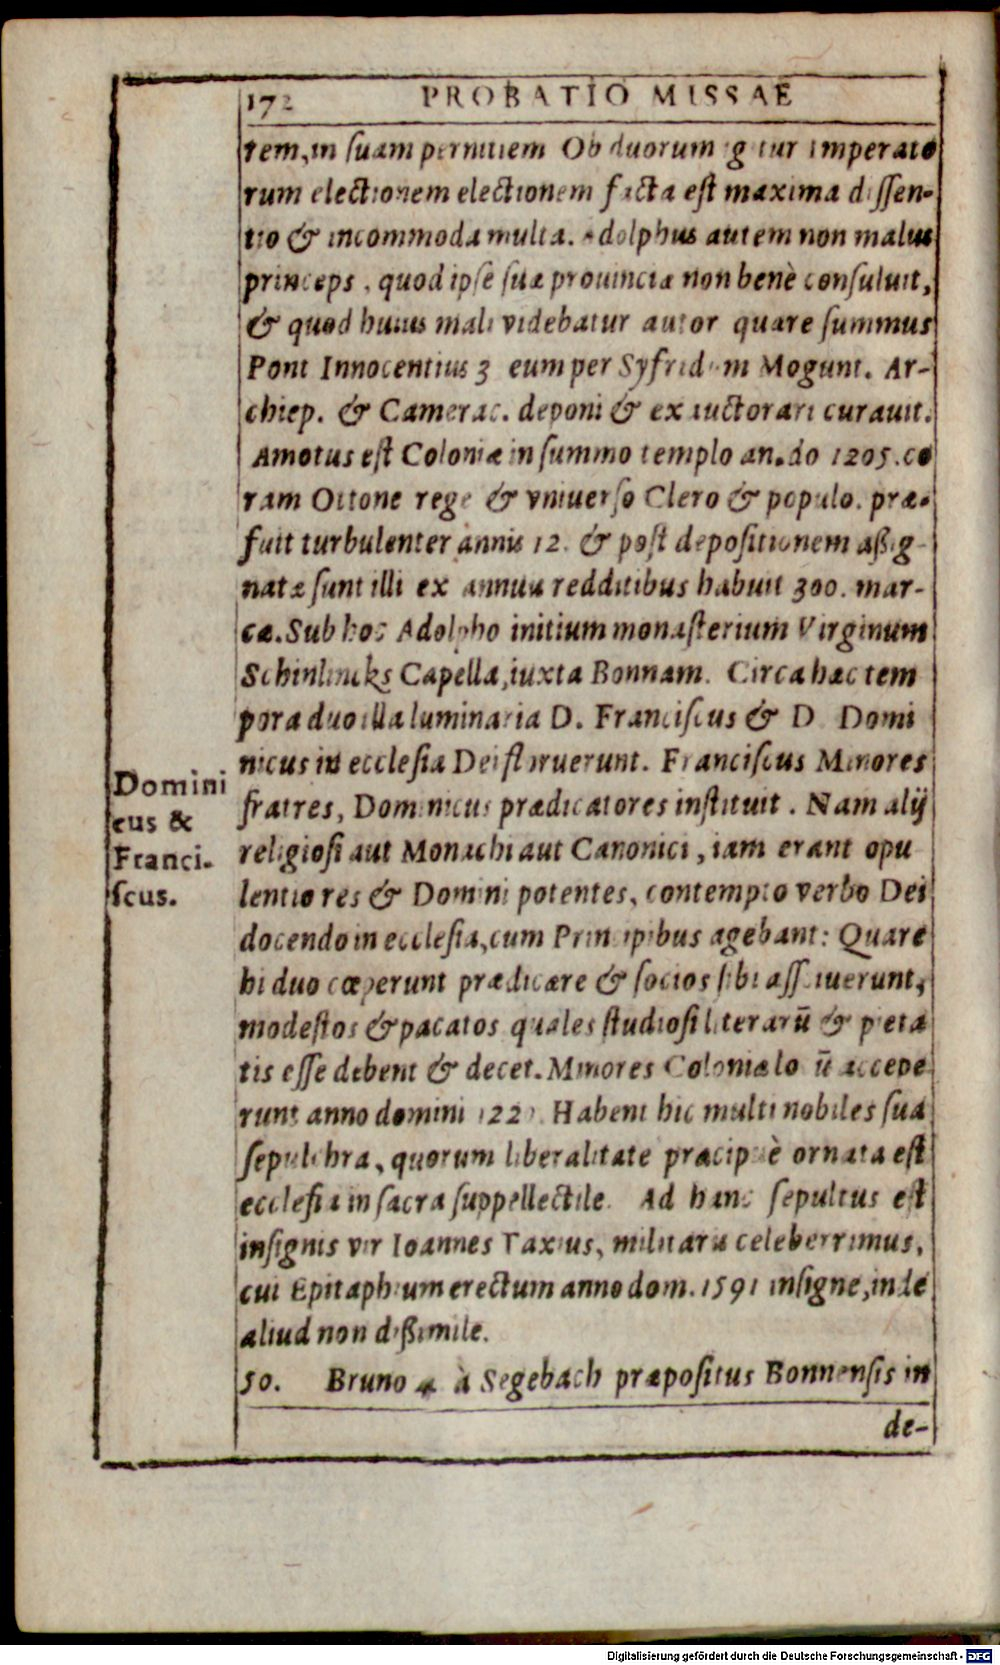 172 PROBATIO MISSAE
tem, in ſuam pernitiem Ob duorum igitur imperato
rum electionem electionem facta eſt maxima diſſen-
tio & incommoda multa. Adolphus autem non malus
princeps, quod ipſe ſuæ prouinciæ non benè conſuluit,
& quod huius mali videbatur autor quare ſummus
Pont Innocentius 3 eum per Syfridum Mogunt. Ar-
chiep. & Camerac. deponi & exauctorari curauit.
Amotus eſt Coloniæ in ſummo templo an. do 1205. co
ram Ottone rege & vniuerſo Clero & populo. præ-
fuit turbulenter annis 12. & poſt depoſitionem aßig-
natæ ſunt illi ex annuis redditibus habuit 300. mar-
cæ. Sub hoc Adolpho initium monaſterium Virginum
Schinlincks Capella, iuxta Bonnam. Circa hæc tem
pora duo illa luminaria D. Franciſcus & D Domi
nicus in eccleſia Dei floruerunt. Franciſcus Minores
fratres, Dominicus prædicatores inſtituit. Nam alij
religioſi aut Monachi aut Canonici, iam erant opu
lentiores & Domini potentes, contempto verbo Dei
docendo in eccleſia, cum Principibus agebant: Quare
hi duo cœperunt prædicare & ſocios ſibi aſſciuerunt,
modeſtos & pacatos quales ſtudioſi literarū & pieta
tis eſſe debent & decet. Minores Coloniæ locū accepe
runt anno domini 122 Habent hic multi nobiles ſua
ſepulchra, quorum liberalitate præcipuè ornata eſt
eccleſia in ſacra ſuppellectile. Ad hanc ſepultus eſt
inſignis vir Ioannes Taxius, militaris celeberrimus,
cui Epitaphium erectum anno dom. 1591 inſigne, inde
aliud non dißimile.
50. Bruno 4 à Segebach præpoſitus Bonnenſis in
de-
Domini
cus &
Franci-
ſcus.
Digitalisierung gefördert durch die Deutsche Forschungsgemeinschaft - DFG